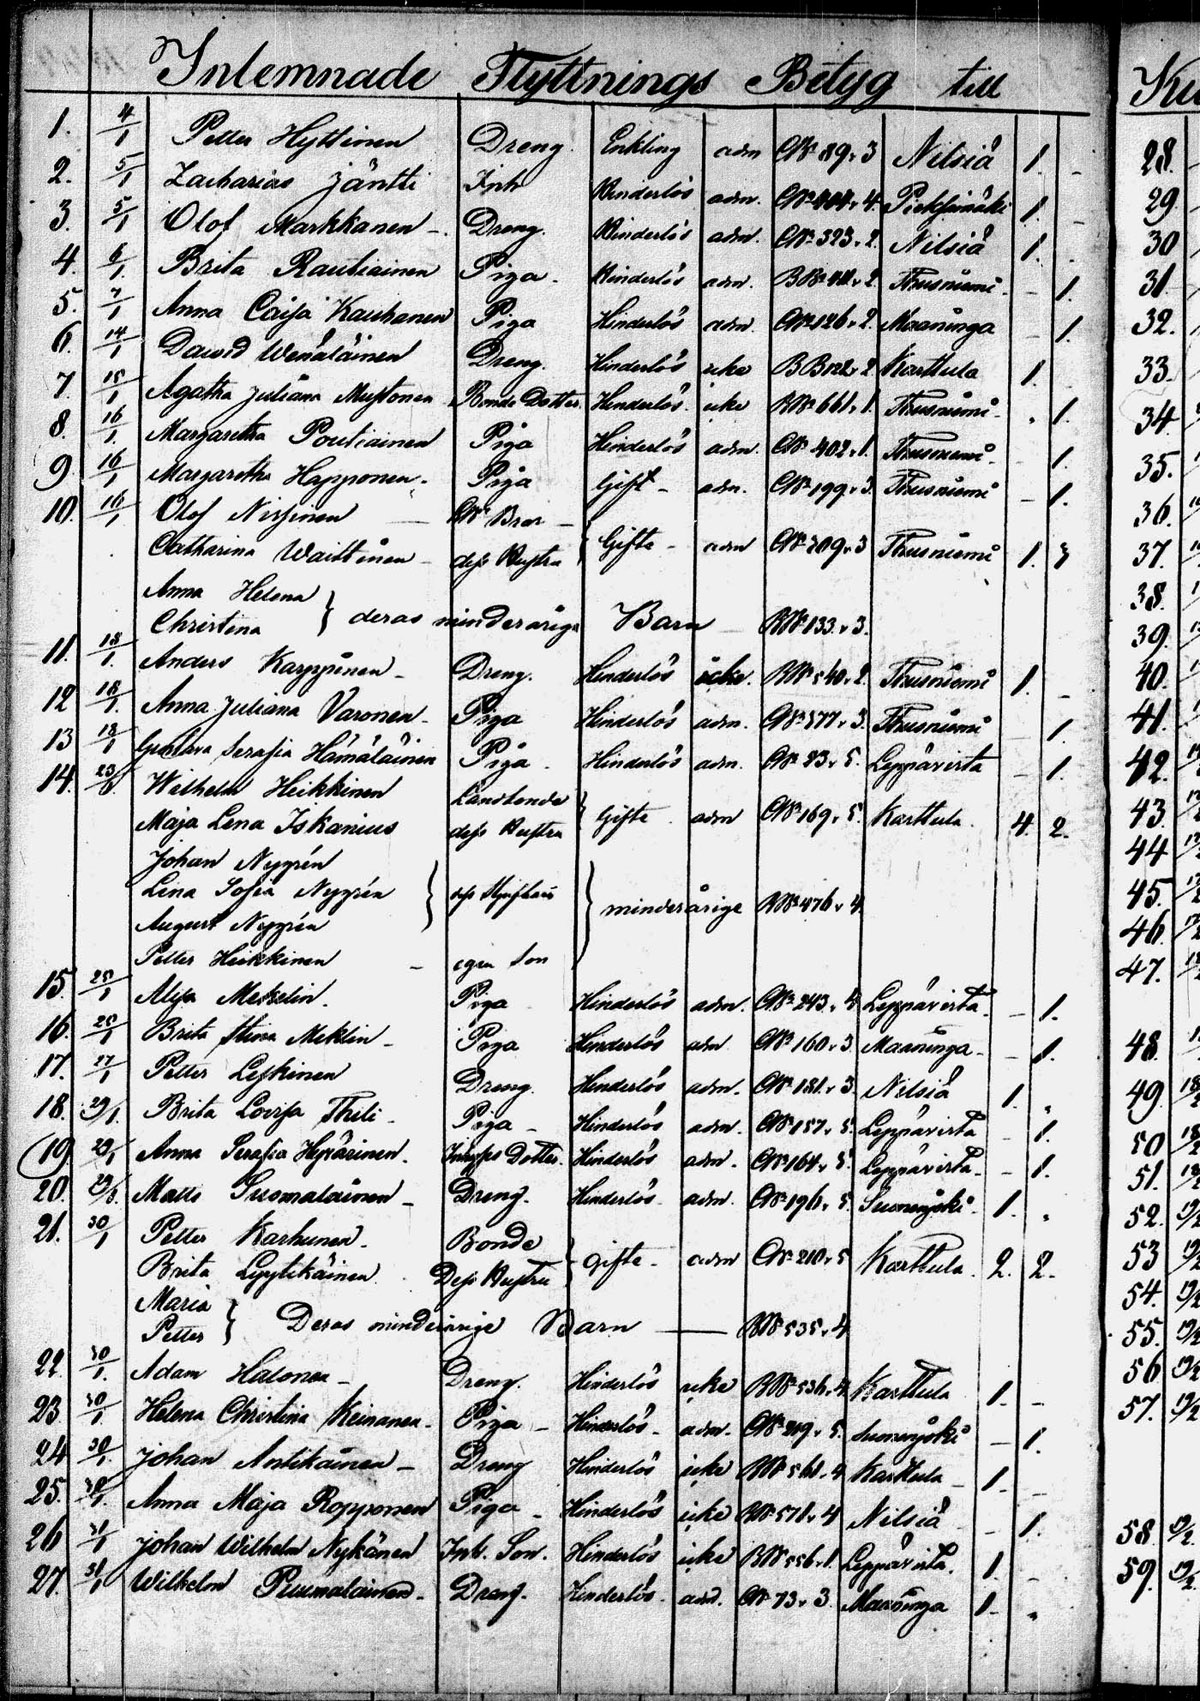 Inlemnade Flyttnings Betyg till
1. 4/1 Petter Hyttinen Dreng. Enkling adm CN 89. v 3 Nilsiä 1. -
2. 5/1 Zacharias Jäntti Inh Hinderlös adm. v 4. Pieksämäki 1. -
3. 5/1 Olof Markkanen - Dreng. Hinderlös adm. CN 323. v 2. Nilsiä 1. -
4. 6/1 Brita Rautiainen Piga. Hinderlös adm. v 2. Thusniemi - 1.
5. 7/1 Anna Caisa Kauhanen Piga Hinderlös adm. CN 126. v 2. Maaninga - 1.
6. 14/1 Dawid Wenäläinen Dreng. Hinderlös icke BB 122. v 2 Karttula 1. -
7. 15/1 Agatha Juliana Mustonen Bonde Dotter. Hinderlös. icke BN 661. v 1. Thusniemi. . 1.
8. 16/1. Margaretha Poutiainen Piga Hinderlös adm. CN 402. v 1. Thusniemi. - 1.
9. 16/1 Margaretha Happonen. Piga Gift - adm. CN 199. v 3. Thusniemi - 1.
10. 16/1 Olof Nissinen -
Catharina Waittinen dess Hustru } Gifte - adm CN 209. v 3 Thusniemi 1. 3
Anna Helena
Christina } deras minderåriga Barn BN 133. v 3.
11. 18/1. Anders Karppinen - Dreng. Hinderlös icke. BN 540. v 2. Thusniemi 1. -
12 18/1. Anna Juliana Varonen. Piga Hinderlös adm. CN 377. v 3. Thusniemi 1.
13 18/1 Gustava Serafia Hämäläinen Piga. Hinderlös adm. CN 23. v 5. Leppävirta - 1.
14. Wilhelm Heikkinen Landbonde
Maja Lena Iskanius dess Hustru } Gifte. adm CN 169. v 5. Karttula. 4. 2.
Johan Nygrén
Lina Sofia Nygrén } } minderårige BN 476. v 4.
August Nygrén
Petter Heikkinen - egen Son
15. 25/1 Alisa Mekelin. Piga Hinderlös adm. CN 243. v 4 Leppävirta. - 1.
16. 25/1 Brita Stina Meklin - Piga Hinderlös adm CN 160. v 3. Maaninga - - 1.
17. 27/1 Petter Leskinen Dreng. Hinderlös adm. CN 181. v 3. Nilsiä 1. .
18. 29/1. Brita Lovisa Thili. Piga - Hinderlös adm. CN 157. v 5. Leppävirta - 1.
19 29/1 Anna Serafia Hyvärinen. Dotter. Hinderlös adm. CN 164. v 5. Leppävirta. - 1.
20. Matts Suomalainen - Dreng. Hinderlös adm. CN 196. v 5. Suonenjoki. 1. .
21. 30/1 Petter Karhunen. Bonde
Brita Lyytikäinen. Dess Hustru } gifte. adm CN 210. v 5 Karttula. 2. 2.
Maria
Petter } Deras minderårige Barn — BN 535. v 4
22. 30/1. Adam Halonen - Dreng. Hinderlös icke BN 536. v 4. Karttula 1. -
23 30/1. Helena Christina Keinanen. Piga - Hinderlös - adm. CN 219. v 5. Suonenjoki - 1.
24 30/1. Johan Antikainen - Dreng Hinderlös icke BN 561. v 4 Karttula 1. -
25. Anna Maja Ropponen Piga - Hinderlös icke BN 571. v 4 Nilsiä - 1.
26 31/1 Johan Wilhelm Nykänen Inh. Son. Hinderlös icke BN 556. v 1. Leppävirta. 1. -
27. 31/1 Wilhelm Puumalainen. Dreng. Hinderlös. adm. CN 73. v 3. Maaninga 1. .
28.
29.
30
31.
32.
33.
34.
35.
36.
37.
38.
39.
40.
41.
42.
43.
44
45.
46.
47.
48.
49.
50
51.
52.
53
54.
55.
56
57.
58.
59.